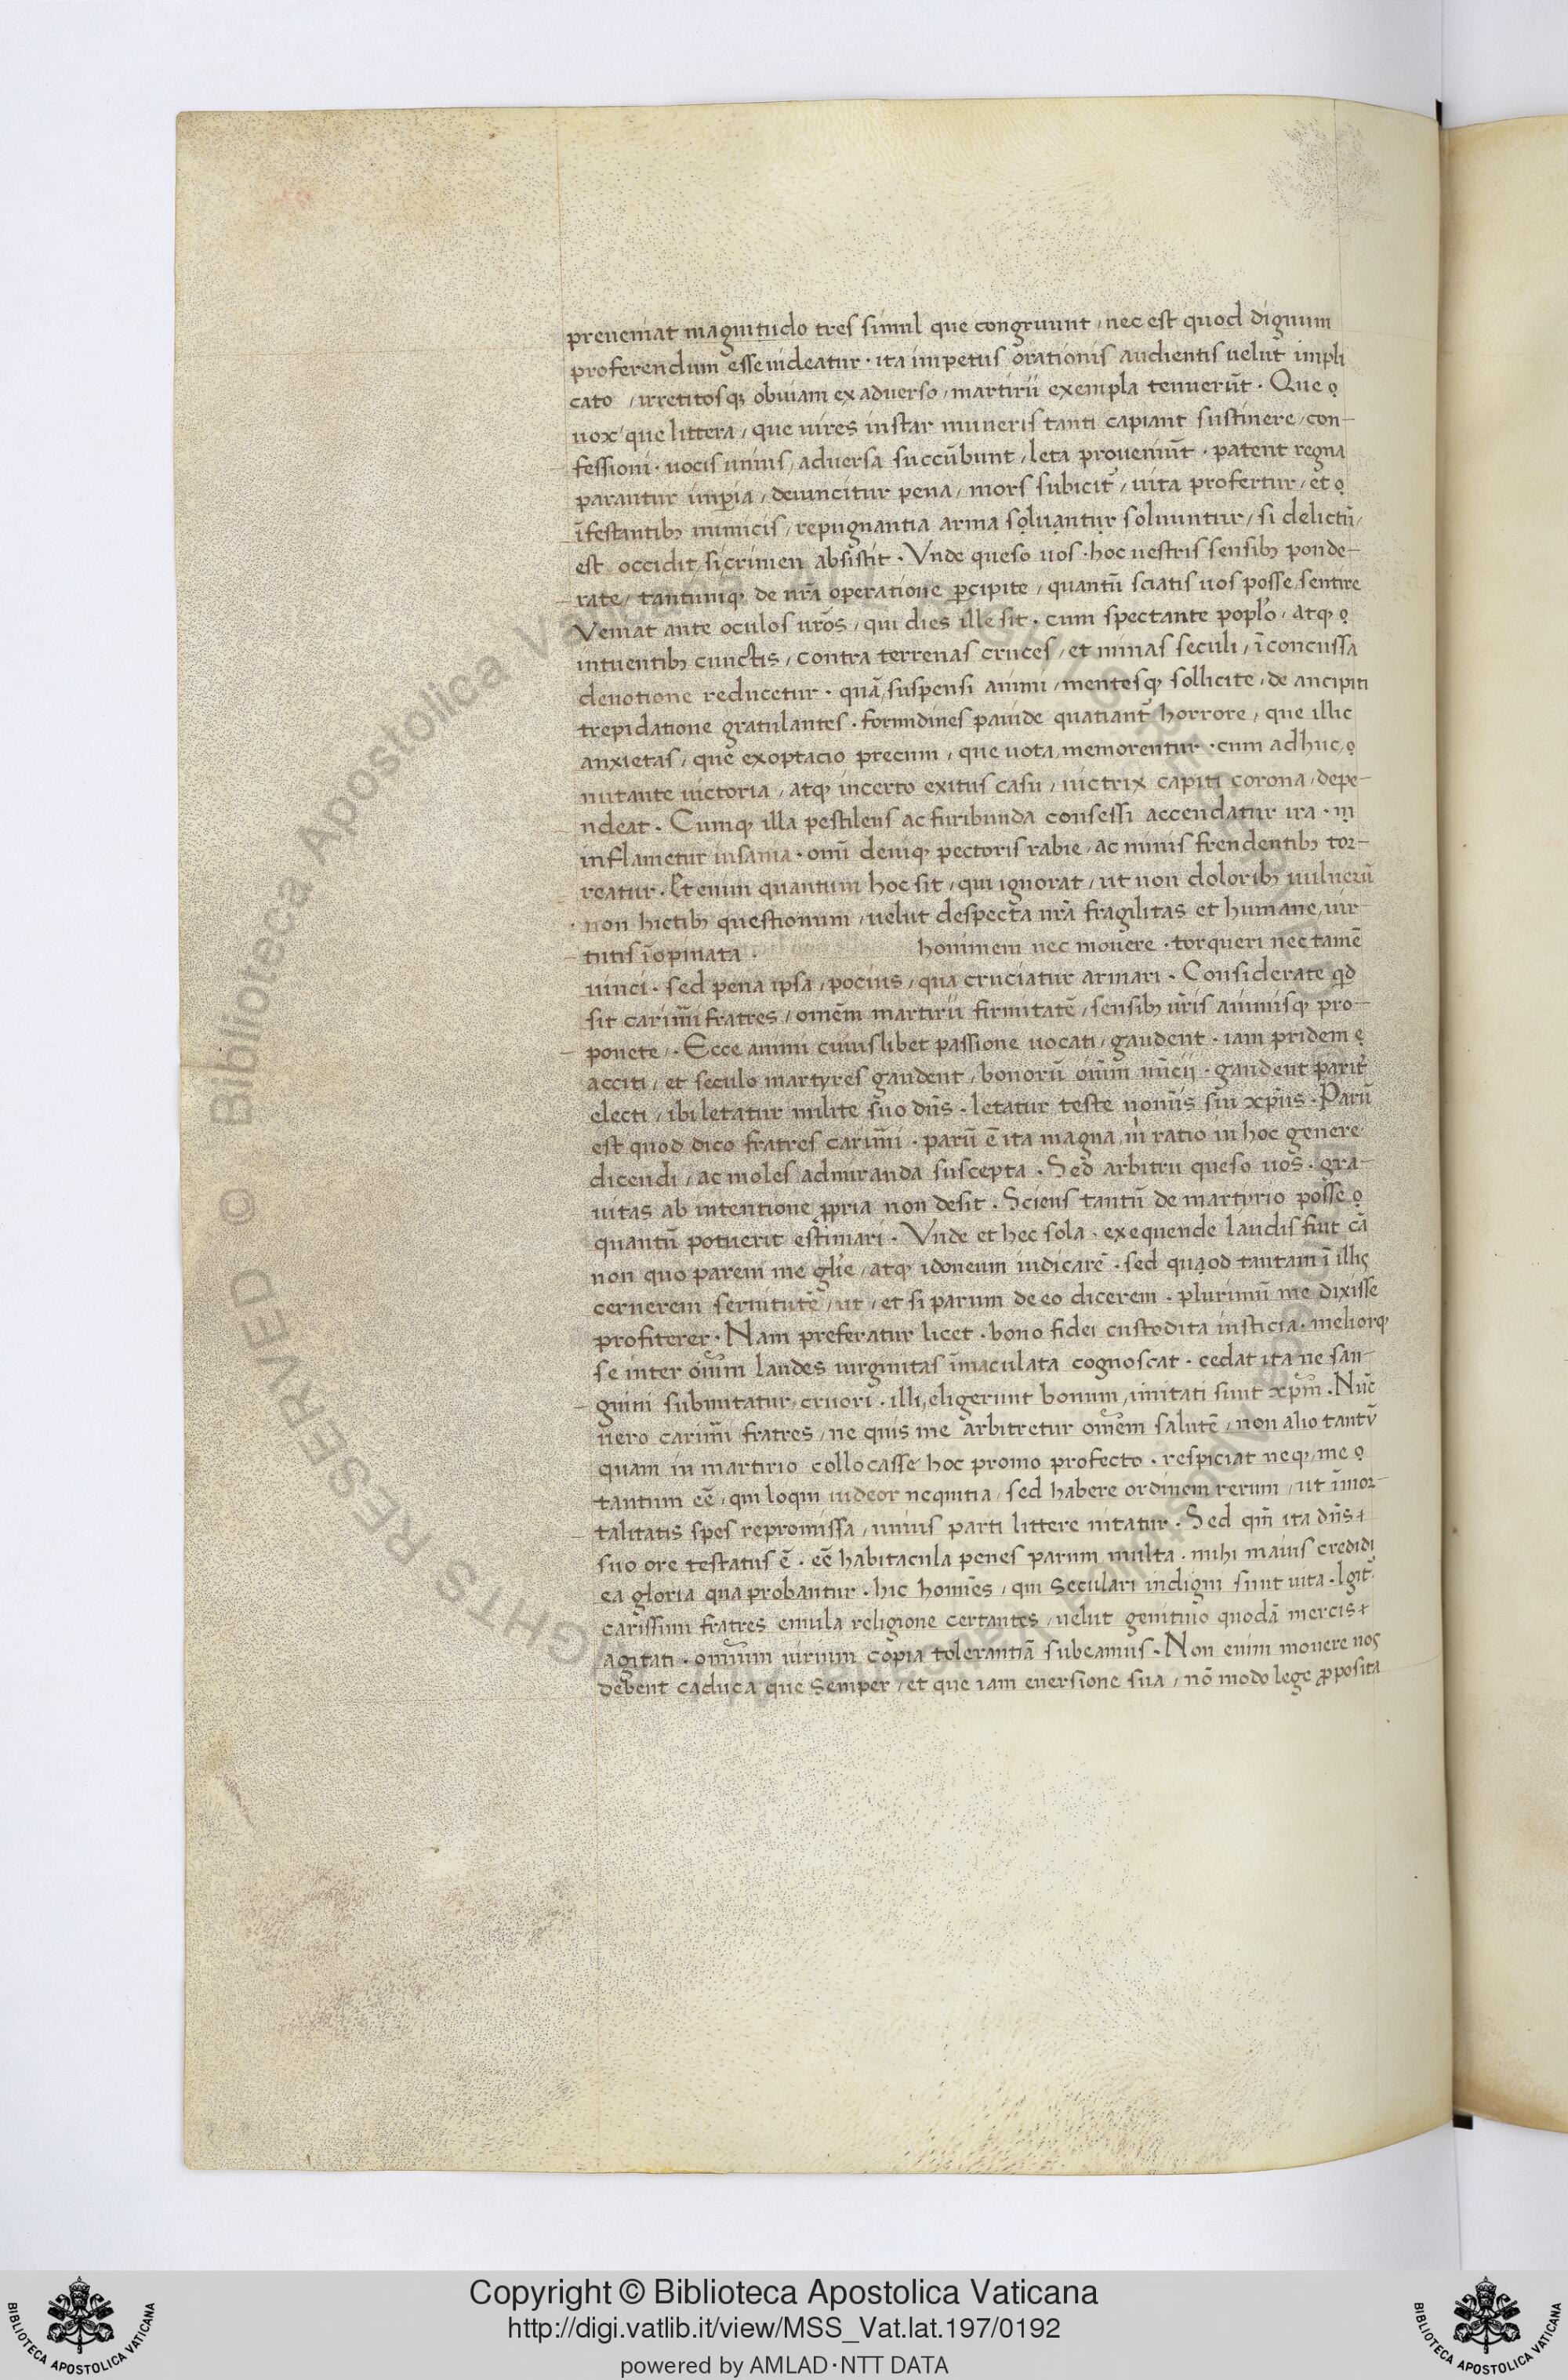 preueniat magnitudo tres simul que congruunt / nec est quod dignum
proferendum esse uideatur · ita impetus orationis audientis uelut̄ impli
cato / irretitosq; obuiam ex aduerso / martirii exempla tenuerūt · Que
uox / que littera / que uires instar muneris tanti capiant sustinere / con-
fessioni · uocis unius / aduersa succūbunt / leta proueniūt · patent regna
parantur imꝑia / deuincitur pena / mors subicit̄ / uita profertur / et
īfestantibꝫ inimicis / repugnantia arma soluantur soluuntur / si delictū /
est occidit / si crimen absistit · Vnde queso uos · hoc uestris sensibꝫ ponde-
rate / tantumq; de nr̄a operatione ꝑcipite / quantū sciatis uos posse sentire
Veniat ante oculos ur̄os / qui dies ille sit · cum spectante popl̄o / atq;
intuentibꝫ cunctis / contra terrenas cruces / et minas seculi / īconcussa
deuotione reducetur · quā suspensi animi / mentesq; sollicite / de ancipiti
trepidatione gratulantes · formidines pauide quatiant̄ horrore / que illic
anxietas / que exoptacio precum / que uota memorentur · cum adhuc
nutante uictoria / atq; incerto exitus casu / uictrix capiti corona / depe-
ndeat · Cumq; illa pestilens ac furibunda consessi accendatur ira · in
inflametur insania · oīnū deniq; pectoris rabie / ac minis frendentibꝫ tor-
reatur · Et enim quantum hoc sit / qui ignorat / ut non doloribꝫ uulnerū
· non hictibꝫ questionum / uelut despecta nr̄a fragilitas et humane uir-
tutis īopinata · hominem nec mouere · torqueri nec tamē
uinci · sed pena ipsa / pocius / qua cruciatur armari · Considerate qd
sit carimī fratres / omēm martirii firmitatē / sensibꝫ ur̄is animisq; pro-
ponete / · Ecce animi cuiuslibet passione uocati / gaudent · iam pridem
acciti / et seculo martyres gaudent / bonorū oīm nūcii · gaudent parit̄
electi / ibi letatur milite suo dn̄s · letatur teste nomīs sui xp̄us · Parū
est quod dico fratres carimī · parū ē ita magna m̀ ratio in hoc genere
dicendi / ac moles admiranda suscepta · Sed arbitrii queso uos · gra-
uitas ab intentione ꝓpria non desit · Sciens tantū de martyrio posse
quantū potuerit estimari · Vnde et hec sola · exequende laudis fuit cā
non quo parem me gl̄ie / atq; idoneum iudicarē · sed quaod tantam ī illis
cernerem seruitutē / ut / et si parum de eo dicerem · plurimū me dixisse
profiterer · Nam preferatur licet · bono fidei custodita iusticia · meliorq;
se inter oīum laudes uirginitas īmaculata cognoscat · cedat ita ne san-
guini submitatur cruori · illi eligerunt bonum / imitati sunt xp̄m · Nūc
uero carimī fratres / ne quis me arbitretur omēm salutē / non alio tantū
quam in martirio collocasse hoc promo profecto · respiciat neq; me
tantum eē / qui loqui uideor nequitia / sed habere ordinem rerum / ut īmor-
talitatis spes repromissa / unius parti littere nitatur · Sed qm̄ ita dn̄s
suo ore testatus ē · eē habitacula penes parum multa · mihi maius credidi
ea gloria qua probantur · hic homīes / qui seculari indigni sunt uita · Igit̄
carissimi fratres emula religione certantes / uelut genitiuo quodā mercis
agitati · omīum uirium copia tolerantiā subeamus · Non enim mouere nos
debent caduca que semper / et que iam euersione sua / nō modo lege ꝓposita
Copyright © Biblioteca Apostolica Vaticana
http://digi.vatlib.it/view/MSS_Vat.lat.197/0192
powered by AMLAD·NTT DATA
BIBLIOTECA APOSTOLICA VATICANA
BIBLIOTECA APOSTOLICA VATICANA